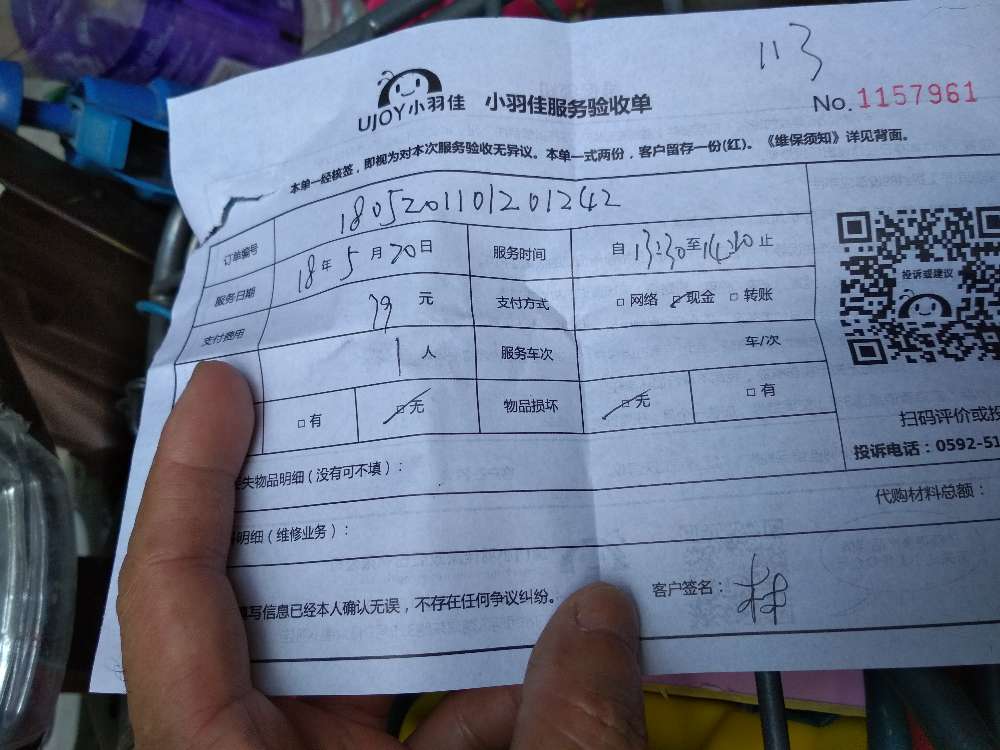 113
UJOY小羽佳 小羽佳服务验收单
No.1157961
本单一经核签，即视为对本次服务验收无异议。本单一式两份，客户留存一份(红)。《维保须知》详见背面。
订单编号 180520110120124 2
服务日期 18年5月20日 服务时间 自13:30至14:30止
支付费用 79元 支付方式 □网络 ☑现金 □转账
1人 服务车次 车/次
□有 ☑无 物品损坏 ☑无 □有
投诉或建议
扫码评价或投
投诉电话：0592-51
失物品明细（没有可不填）：
代购材料总额：
明细（维修业务）：
填写信息已经本人确认无误，不存在任何争议纠纷。
客户签名：